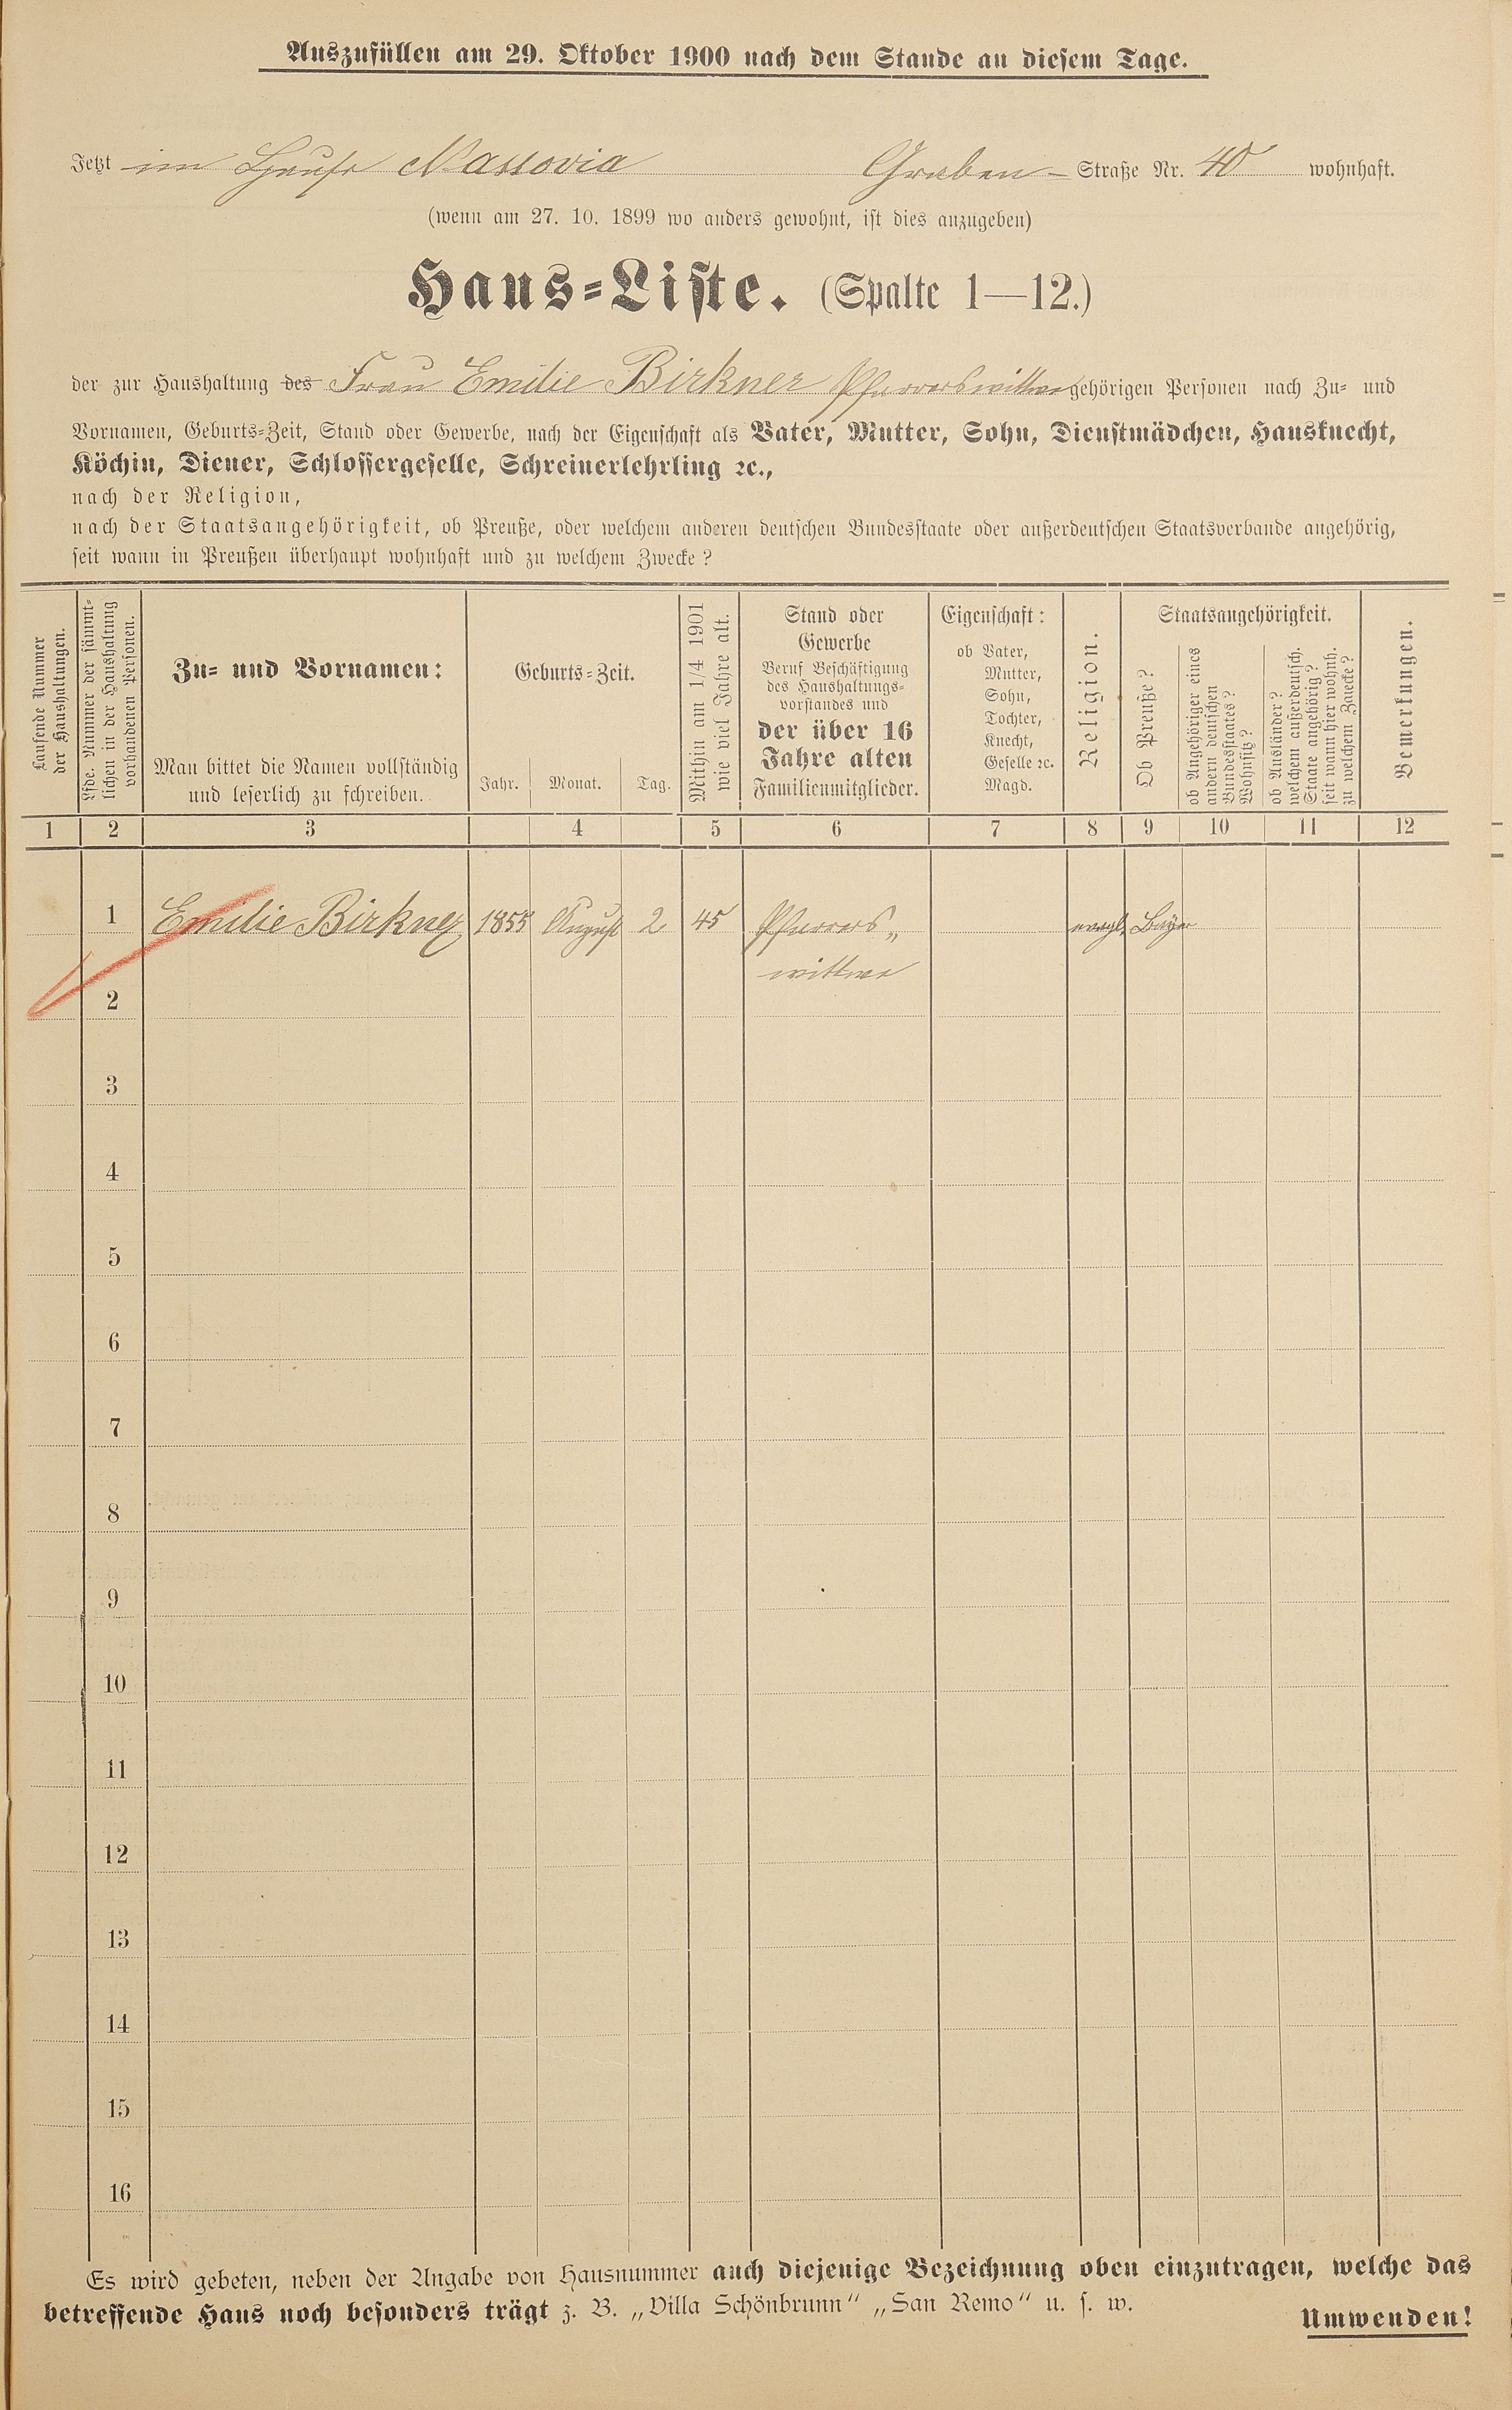 Auszufüllen am 29. Oktober 1900 nach dem Stande an diesem Tage.
Jetzt im Hause Nassovia Graben- Straße Nr. 40 wohnhaft.
(wenn am 27. 10. 1899 wo anders gewohnt, ist dies anzugeben)
Haus-Liste. (Spalte 1—12.)
der zur Haushaltung des Frau Emilie Birkner Pfarrerswittwe gehörigen Personen nach Zu- und
Vornamen, Geburts-Zeit, Stand oder Gewerbe, nach der Eigenschaft als Vater, Mutter, Sohn, Dienstmädchen, Hausknecht,
Köchin, Diener, Schlossergeselle, Schreinerlehrling ꝛc.,
nach der Religion,
nach der Staatsangehörigkeit, ob Preuße, oder welchem anderen deutschen Bundesstaate oder außerdeutschen Staatsverbande angehörig,
seit wann in Preußen überhaupt wohnhaft und zu welchem Zwecke?
Laufende Nummer
der Haushaltungen.
Lfde. Nummer der sämmt-
lichen in der Haushaltung
vorhandenen Personen.
Zu- und Vornamen:
Man bittet die Namen vollständig
und leserlich zu schreiben.
Geburts-Zeit.
Jahr. Monat. Tag.
Mithin am 1/4 1901
wie viel Jahre alt.
Stand oder
Gewerbe
Beruf Beschäftigung
des Haushaltungs-
vorstandes und
der über 16
Jahre alten
Familienmitglieder.
Eigenschaft:
ob Vater,
Mutter,
Sohn,
Tochter,
Knecht,
Geselle ꝛc.
Magd.
Religion.
Staatsangehörigkeit.
Ob Preuße?
ob Angehöriger eines
andern deutschen
Bundesstaates?
Wohnsitz?
ob Ausländer?
welchem außerdeutsch.
Staate angehörig?
seit wann hier wohnh.
zu welchem Zwecke?
Bemerkungen.
1 2 3 4 5 6 7 8 9 10 11 12
1 Emilie Birkner 1855 August 2 45 Pfarrers„ evagl. Bayer
wittwe
2
3
4
5
6
7
8
9
10
11
12
13
14
15
16
Es wird gebeten, neben der Angabe von Hausnummer auch diejenige Bezeichnung oben einzutragen, welche das
betreffende Haus noch besonders trägt z. B. „Villa Schönbrunn“ „San Remo“ u. s. w.
Umwenden!